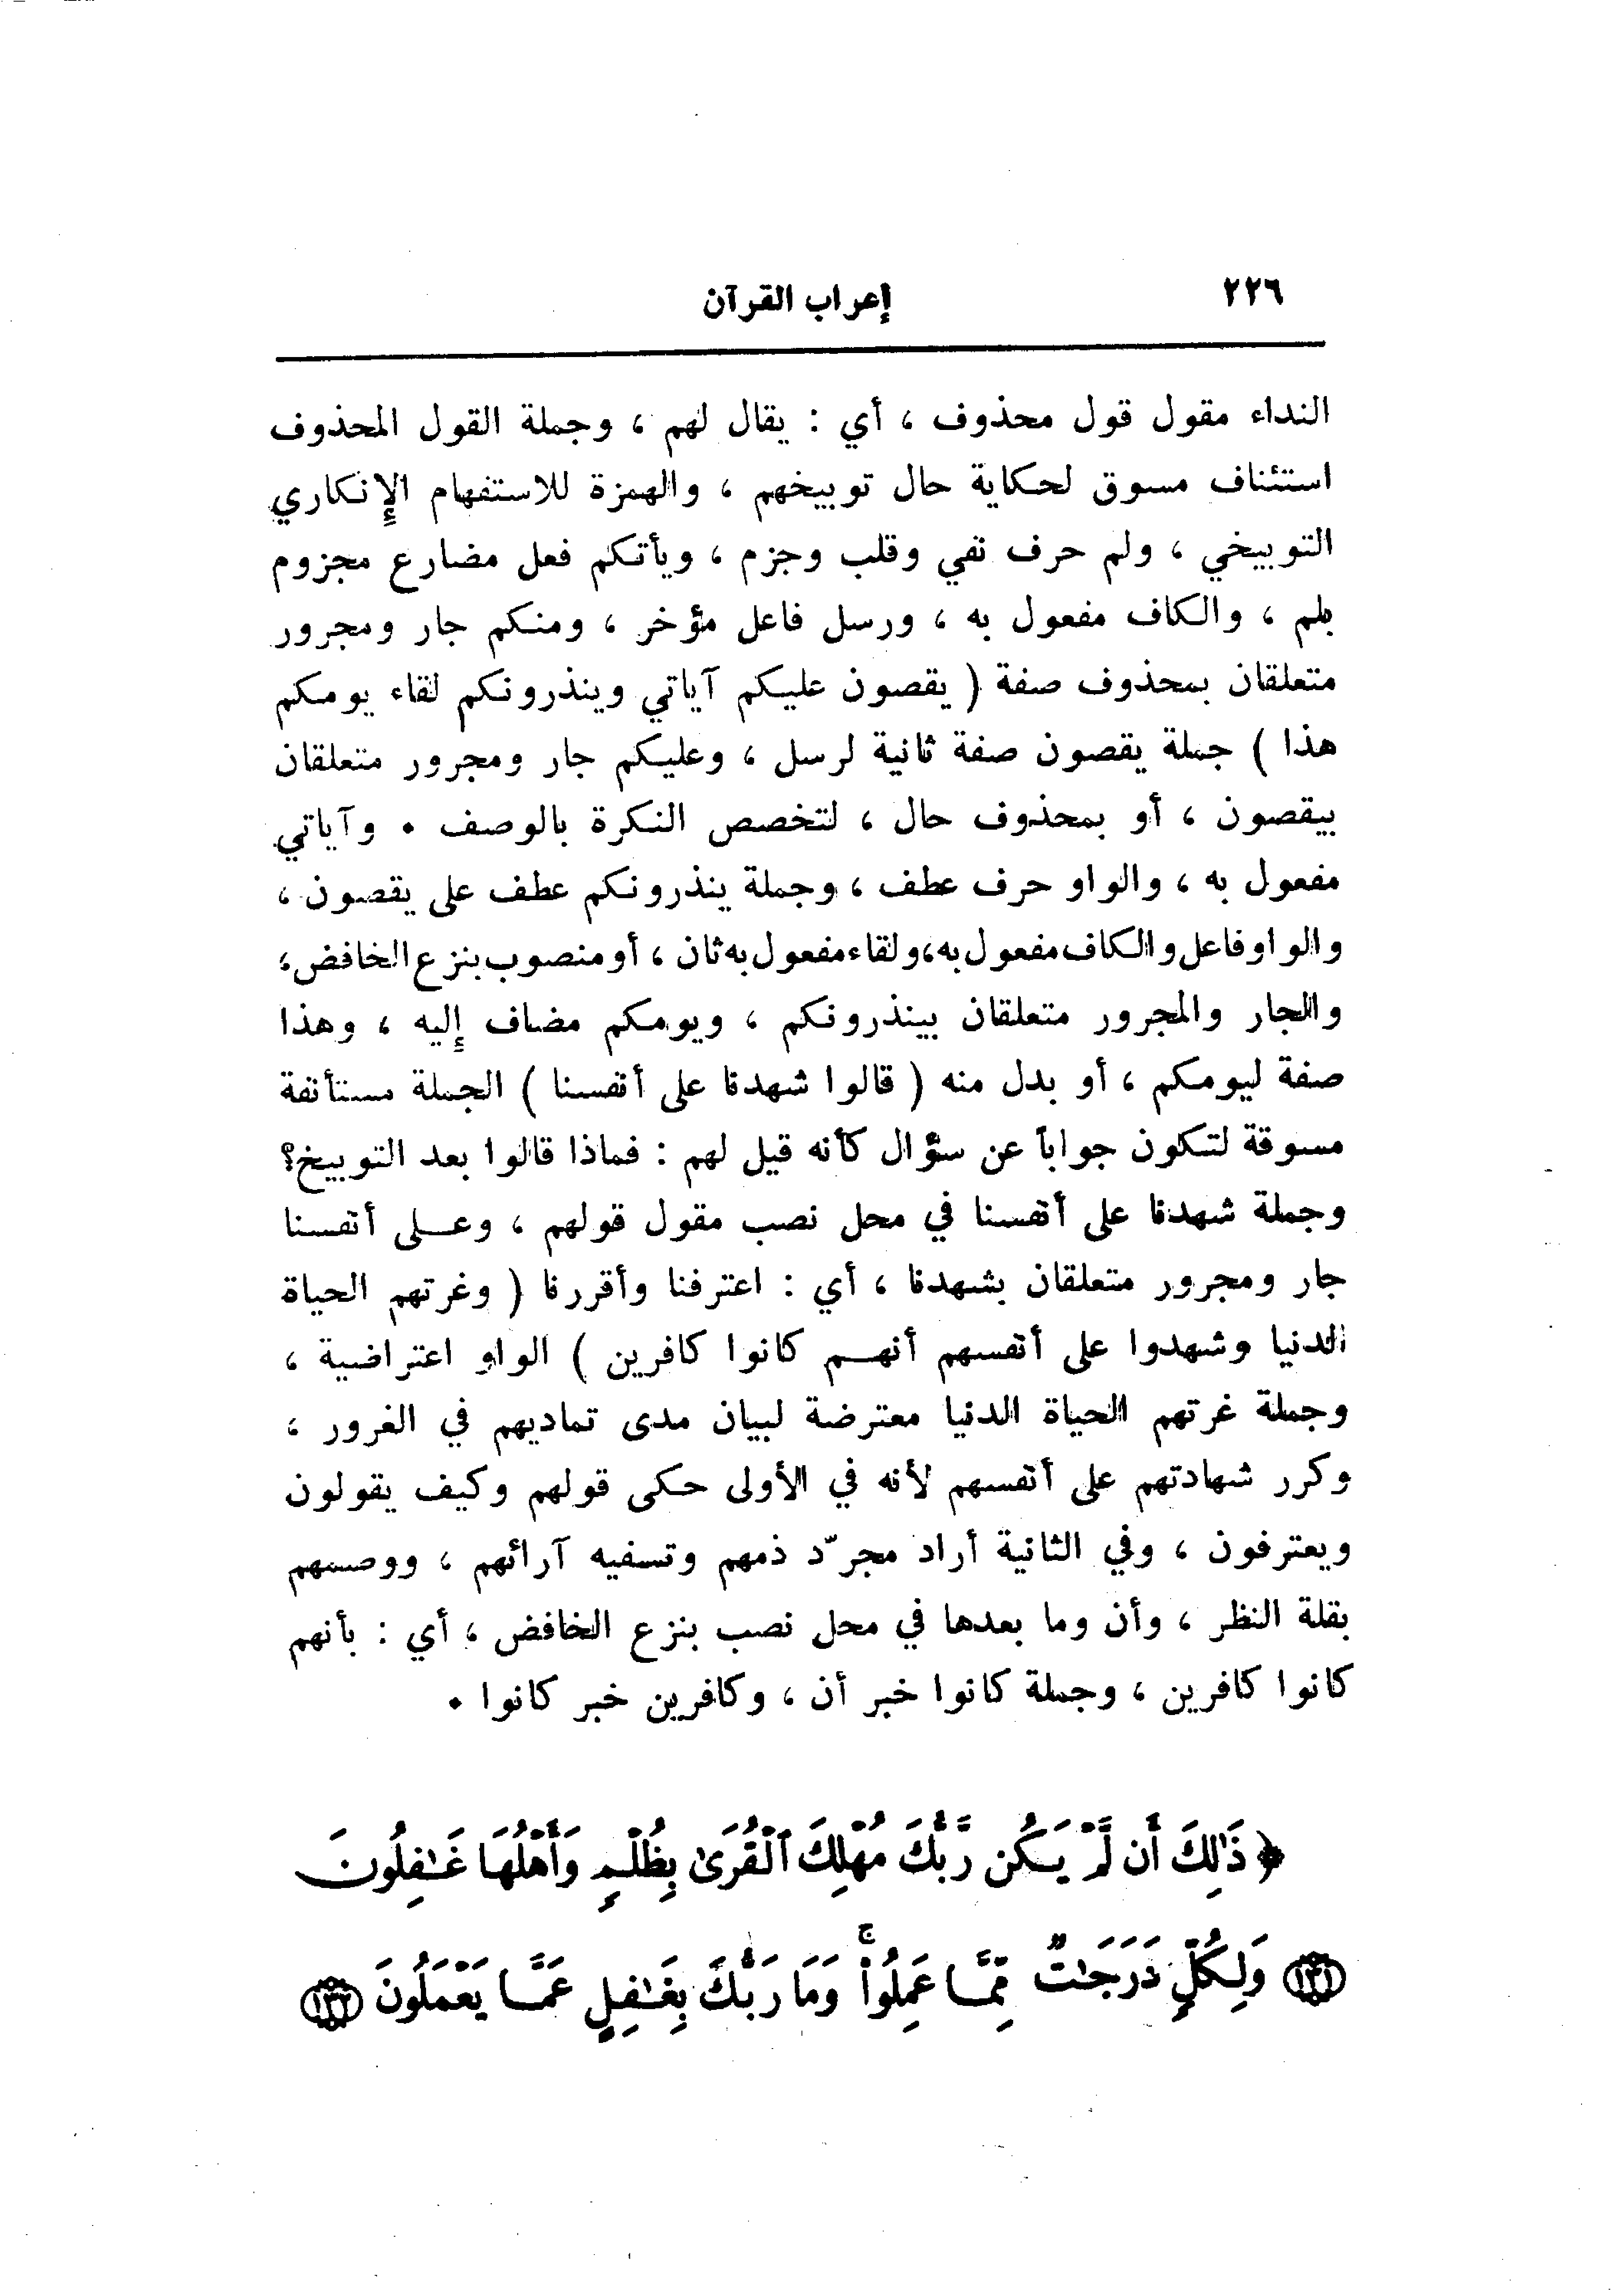 ٢٢٦ إعراب القرآن
النداء مقول قول محذوف ، أي : يقال لهم ، وجملة القول المحذوف
استئناف مسوق لحكاية حال توبيخهم ، والهمزة للاستفهام الإنكاري
التوبيخي ، ولم حرف نفي وقلب وجزم ، ويأتكم فعل مضارع مجزوم
بلم ، والكاف مفعول به ، ورسل فاعل مؤخر ، ومنكم جار ومجرور
متعلقان بمحذوف صفة ( يقصون عليكم آياتي وينذرونكم لقاء يومكم
هذا ) جملة يقصون صفة ثانية لرسل ، وعليكم جار ومجرور متعلقان
بيقصون ، أو بمحذوف حال ، لتخصص النكرة بالوصف . وآياتي
مفعول به ، والواو حرف عطف ، وجملة ينذرونكم عطف على يقصون ،
والواو فاعل والكاف مفعول به، ولقاء مفعول به ثان ، أو منصوب بنزع الخافض،
والجار والمجرور متعلقان بينذرونكم ، ويومكم مضاف إليه ، وهذا
صفة ليومكم ، أو بدل منه ( قالوا شهدنا على أنفسنا ) الجملة مستأنفة
مسوقة لتكون جواباً عن سؤال كأنه قيل لهم : فماذا قالوا بعد التوبيخ؟
وجملة شهدنا على أنفسنا في محل نصب مقول قولهم ، وعلى أنفسنا
جار ومجرور متعلقان بشهدنا ، أي : اعترفنا وأقررنا ( وغرتهم الحياة
الدنيا وشهدوا على أنفسهم أنهم كانوا كافرين ) الواو اعتراضية ،
وجملة غرتهم الحياة الدنيا معترضة لبيان مدى تماديهم في الغرور ،
وكرر شهادتهم على أنفسهم لأنه في الأولى حكى قولهم وكيف يقولون
ويعترفون ، وفي الثانية أراد مجرّد ذمهم وتسفيه آرائهم ، ووصمهم
بقلة النظر ، وأن وما بعدها في محل نصب بنزع الخافض ، أي : بأنهم
كانوا كافرين ، وجملة كانوا خبر أن ، وكافرين خبر كانوا .
﴿ ذَٰلِكَ أَن لَّمْ يَكُن رَّبُّكَ مُهْلِكَ ٱلْقُرَىٰ بِظُلْمٍ وَأَهْلُهَا غَـٰفِلُونَ
﴿١٣١﴾ وَلِكُلٍّ دَرَجَـٰتٌ مِّمَّا عَمِلُوا۟ ۚ وَمَا رَبُّكَ بِغَـٰفِلٍ عَمَّا يَعْمَلُونَ ﴿١٣٢﴾